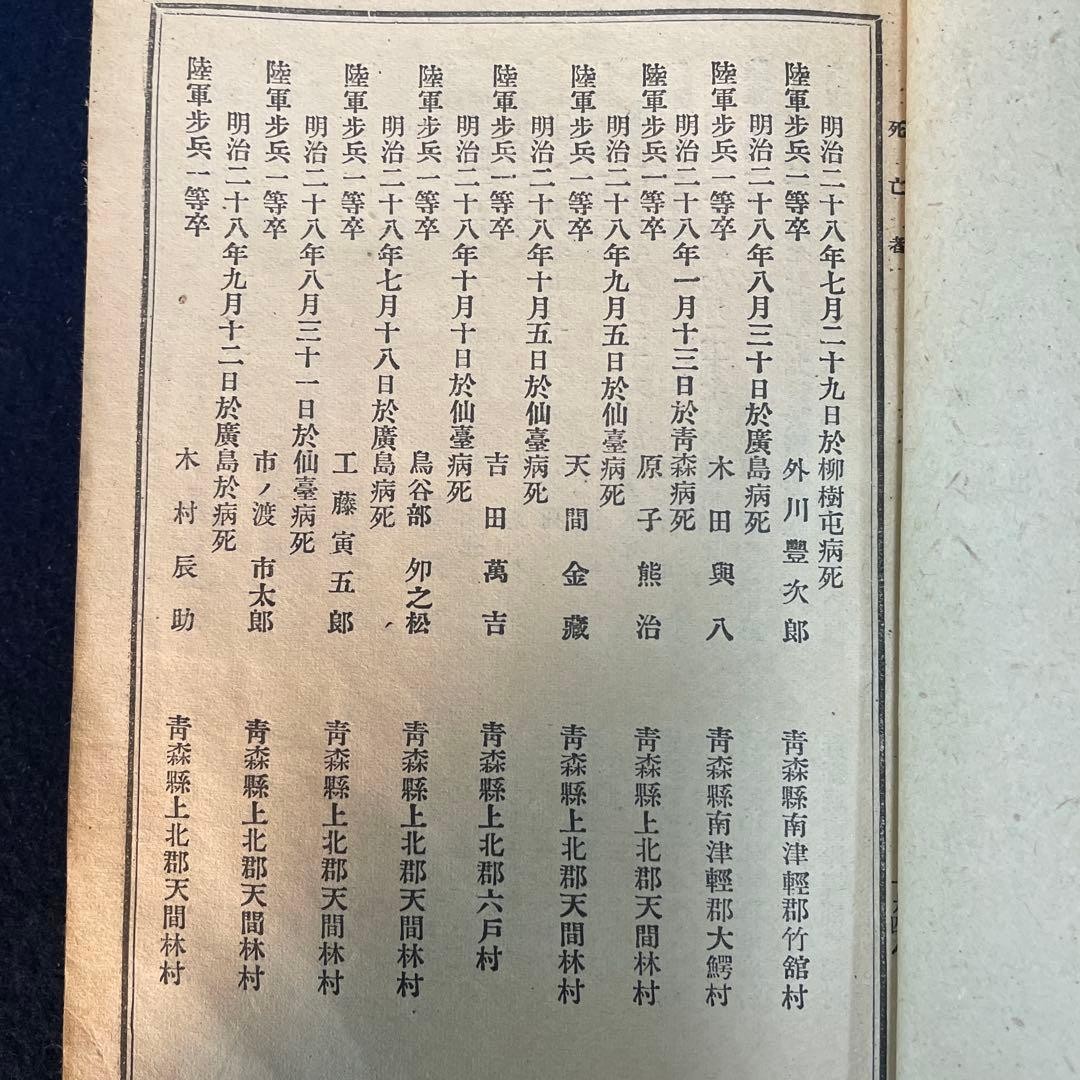 死亡者
明治二十八年七月二十九日於柳樹屯病死
陸軍歩兵一等卒 外川豐次郎 青森縣南津輕郡竹舘村
明治二十八年八月三十日於廣島病死
陸軍歩兵一等卒 木田與八 青森縣南津輕郡大鰐村
明治二十八年一月十三日於青森病死
陸軍歩兵一等卒 原子熊治 青森縣上北郡天間林村
明治二十八年九月五日於仙臺病死
陸軍歩兵一等卒 天間金藏 青森縣上北郡天間林村
明治二十八年十月五日於仙臺病死
陸軍歩兵一等卒 吉田萬吉 青森縣上北郡六戸村
明治二十八年十月十日於仙臺病死
陸軍歩兵一等卒 鳥谷部夘之松 青森縣上北郡天間林村
明治二十八年七月十八日於廣島病死
陸軍歩兵一等卒 工藤寅五郎 青森縣上北郡天間林村
明治二十八年八月三十一日於仙臺病死
陸軍歩兵一等卒 市ノ渡市太郎 青森縣上北郡天間林村
明治二十八年九月十二日於廣島於病死
陸軍歩兵一等卒 木村辰助 青森縣上北郡天間林村